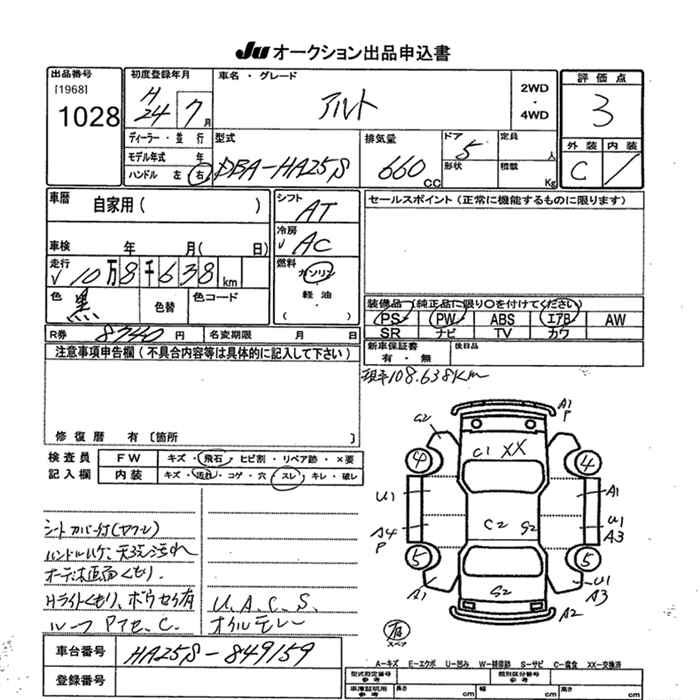 Ju オークション出品申込書
出品番号
[1968]
1028
初度登録年月
H
24 7 月
車名・グレード
アルト
2WD
・
4WD
評価点
3
外装 内装
C
ディーラー・並行
モデル年式 年
ハンドル 左 右
型式
DBA-HA25S
排気量
660 CC
ドア 5
形状
定員 人
積載 Kg
車歴
自家用( )
車検 年 月( 日)
走行
10万8千638km
色 黒
色替
色コード
シフト
AT
冷房
AC
燃料
ガソリン
・
軽油
( )
セールスポイント(正常に機能するものに限ります)
装備品(純正品に限り○を付けてください)
PS PW ABS エアB AW
SR ナビ TV カワ
R券 8740円
名変期限 月 日
新車保証書
有・無
後日品
注意事項申告欄(不具合内容等は具体的に記入して下さい)
現車108.638Km
修復歴 有〔箇所 〕
検査員
記入欄
FW キズ・飛石・ヒビ割・リペア跡・×要
内装 キズ・汚れ・コゲ・穴・スレ・キレ・破レ
シートカバー付(ヤブレ)
ハンドルハゲ、天張汚れ
オーディオ画面くもり.
Hライトくもり、ボウセイ有
ルーフ Pアセ、C.
U. A. C. S.
オイルモレ
G2
A1
P
C1 XX
4 4
U1 A1
A4
P
C2 S2
U1
A3
5 5
A1
S2
U1
A3
A2
有
スペア
車台番号 HA25S-849159
登録番号
A-キズ E-エクボ U-凹み W-補修跡 S-サビ C-腐食 XX-交換済
型式指定番号
参考
類別区分番号
参考
車庫証明用
参考
長さ cm 幅 cm 高さ cm